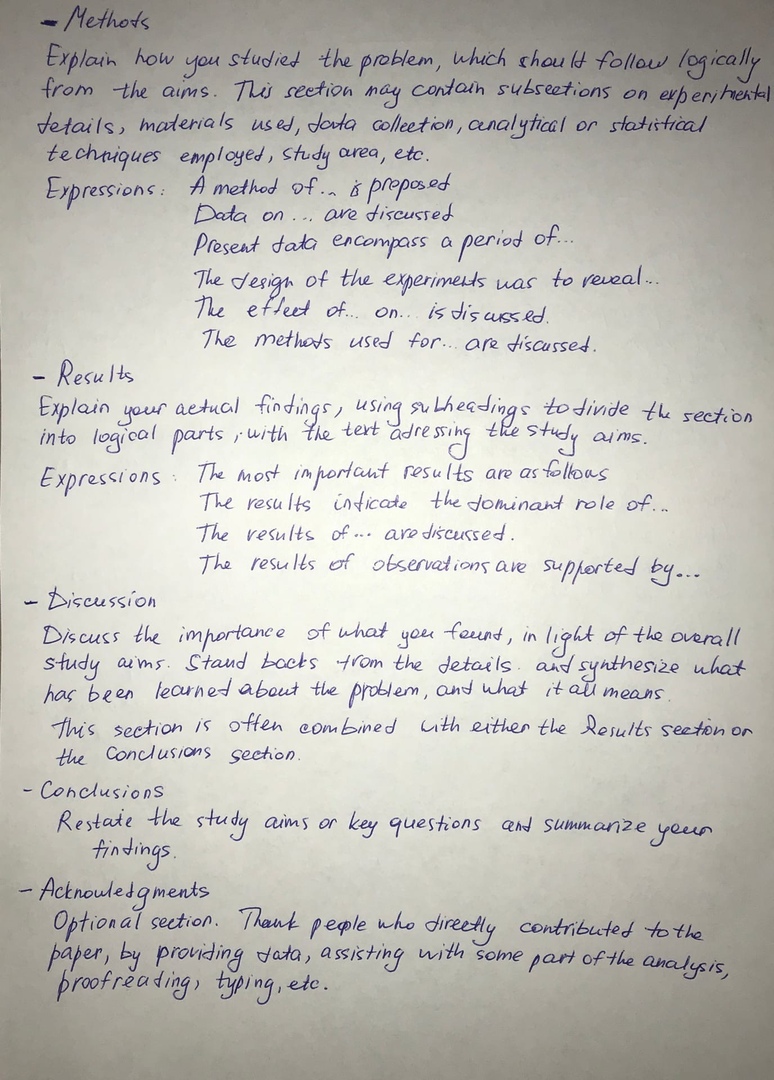 - Methods
Explain how you studied the problem, which should follow logically
from the aims. This section may contain subsections on experimental
details, materials used, data collection, analytical or statistical
techniques employed, study area, etc.
Expressions: A method of... is proposed
Data on ... are discussed
Present data encompass a period of...
The design of the experiments was to reveal...
The effect of... on... is discussed.
The methods used for... are discussed.
- Results
Explain your actual findings, using subheadings to divide the section
into logical parts, with the text adressing the study aims.
Expressions: The most important results are as follows
The results indicate the dominant role of...
The results of... are discussed.
The results of observations are supported by...
- Discussion
Discuss the importance of what you found, in light of the overall
study aims. Stand backs from the details. and synthesize what
has been learned about the problem, and what it all means.
This section is often combined with either the Results section or
the Conclusions section.
- Conclusions
Restate the study aims or key questions and summarize your
findings.
- Acknowledgments
Optional section. Thank people who directly contributed to the
paper, by providing data, assisting with some part of the analysis,
proofreading, typing, etc.